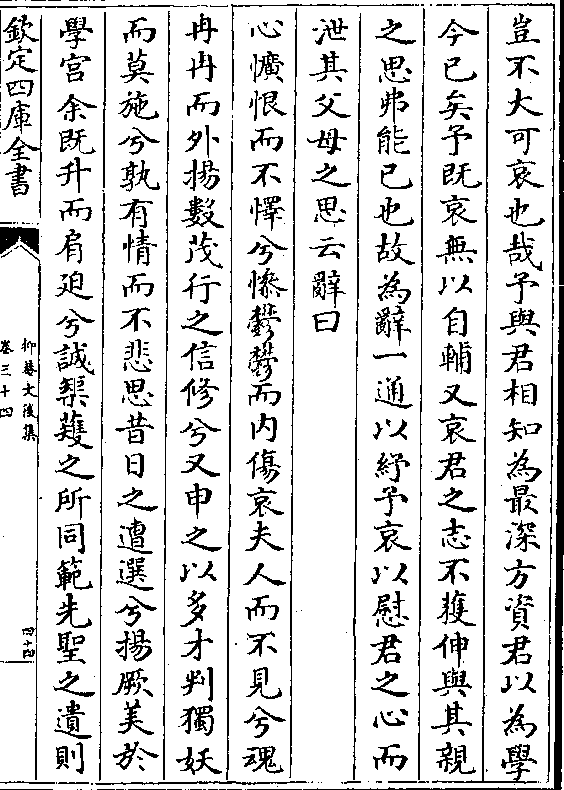 豈不大可哀也哉予與君相知為最深方資君以為學
今已矣予既哀無以自輔又哀君之志不獲伸與其親
之思弗能已也故為辭一通以紓予哀以慰君之心而
泄其父母之思云辭曰
心懭悢而不懌兮慘鬱鬱而内傷哀夫人而不見兮魂
冉冉而外揚數茂行之信修兮又申之以多才判獨妖
而莫施兮孰有情而不悲思昔日之遭選兮揚厥美於
學宫余既升而肩迫兮誠榘蒦之所同範先聖之遺則
欽定四庫全書
抑菴文後集
卷三十四
四十四